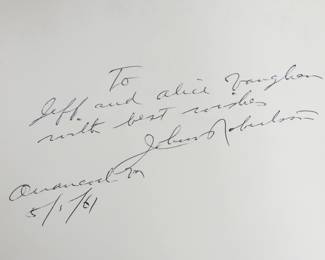 To
Jeff and Alice Vaughan
with best wishes
John Robertson
5/1/61